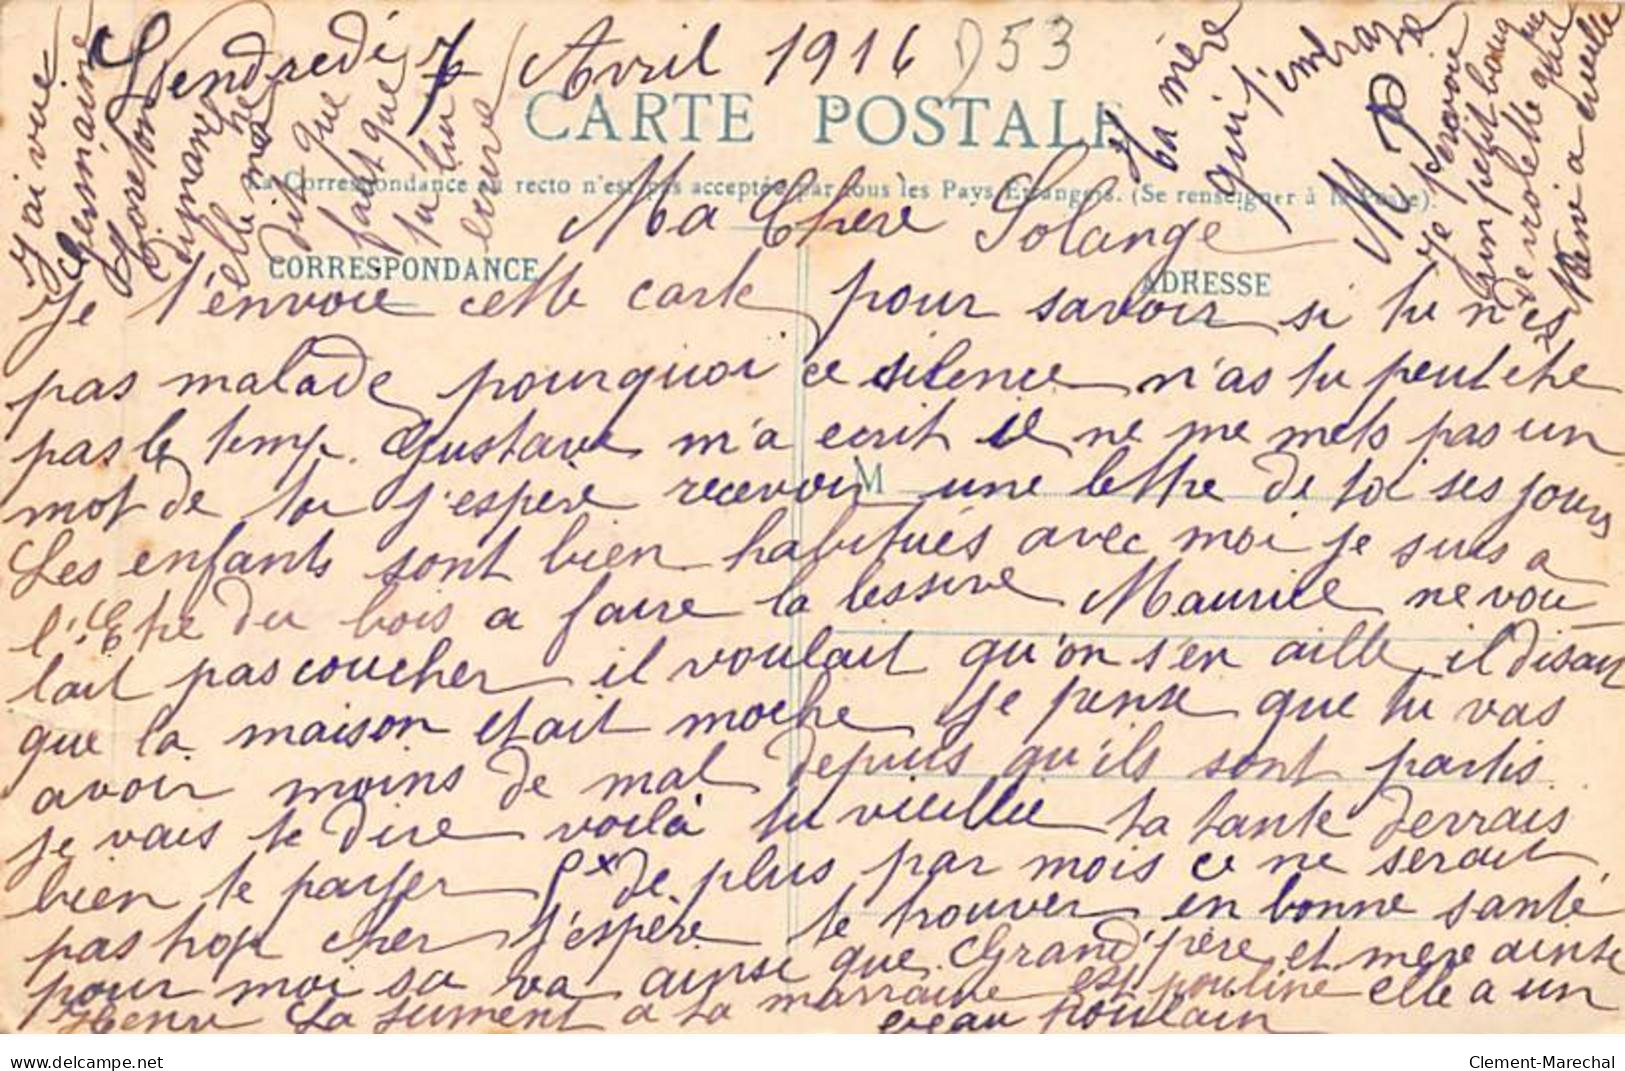 Vendredi 7 Avril 1916 D53
CARTE POSTALE
La Correspondance au recto n'est pas acceptée par tous les Pays Etrangers. (Se renseigner à la Poste).
Ma Chere Solange
CORRESPONDANCE
ADRESSE
Je t'envoie cette carte pour savoir si tu n'es
pas malade pourquoi ce silence n'as tu peut etre
pas le temps. Gustave m'a ecrit il ne me mets pas un
mot de toi j'espère recevoir une lettre de toi ses jours
M
Les enfants sont bien habitués avec moi je suis a
l'Etre du bois a faire la lessive Maurice ne vou
lait pas coucher il voulait qu'on s'en aille il disait
que la maison etait moche Je pense que tu vas
avoir moins de mal depuis qu'ils sont partis
je vais te dire voilà tu vieillie ta tante devrais
bien te payer 5x de plus par mois ce ne serait
pas trop cher J'espère te trouver en bonne santé
pour moi sa va ainsi que Grand'père et mere ainsi
Henri La jument a ta marraine est pouliné elle a un
beau poulain
J'ai vue
Germaine
dimanche
elle m'a
dit que
faut que
tu lui
ecrive
Ta mère
qui t'embrasse
M P
Je t'envoie
un petit bouquet
de violette que
Henri a cueille